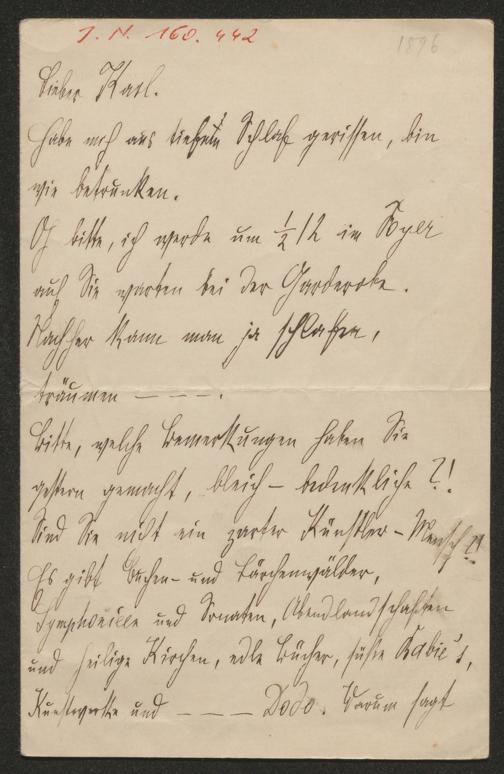 J. N. 160.442
1896
Lieber Karl.
Habe mich aus tiefem Schlaf gerissen, bin
wie betrunken.
Ich bitte, ich werde um ½ 12 im Foyer
auf Sie warten bei der Garderobe.
Nachher kann man ja schlafen,
träumen — — — .
Bitte, welche Bemerkungen haben Sie
gestern gemacht, bleich – bedenkliche ?!
Sind Sie nicht ein zarter Künstler – Mensch ?!
Es gibt Buchen- und Lärchenwälder,
und Sonaten, Abendlandschaften
und heilige Kirchen, edle Bücher, süße
Kunstwerke und — — — Dodo. Warum sagt